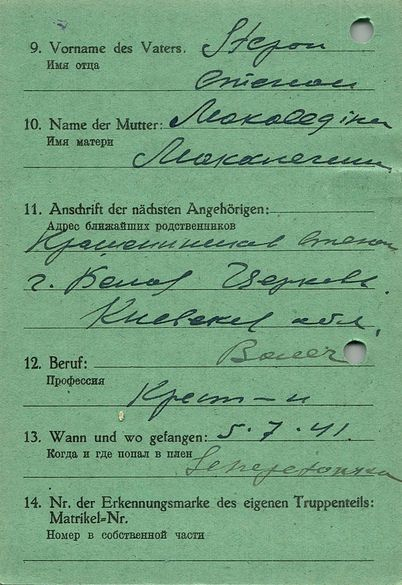 9. Vorname des Vaters. Stepon
Имя отца
Степан
10. Name der Mutter:
Имя матери
11. Anschrift der nächsten Angehörigen:
Адрес ближайших родственников
Степан
г. Белая Церковь
Киевская обл.
12. Beruf: Bauer
Профессия
Крест-н
13. Wann und wo gefangen: 5.7.41.
Когда и где попал в плен
14. Nr. der Erkennungsmarke des eigenen Truppenteils:
Matrikel-Nr.
Номер в собственной части